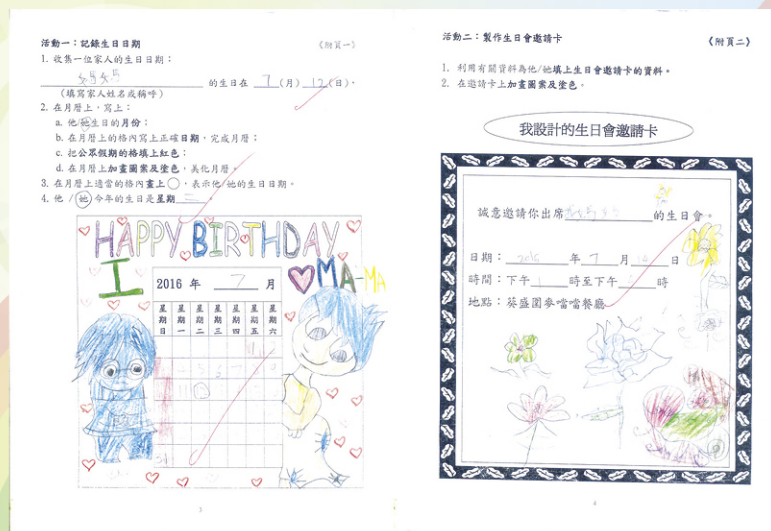 活動一：記錄生日日期
《附頁一》
1. 收集一位家人的生日日期：
媽媽 的生日在 7 (月) 12 (日)。
(填寫家人姓名或稱呼)
2. 在月曆上，寫上：
a. 他/她生日的月份；
b. 在月曆上的格內寫上正確日期，完成月曆；
c. 把公眾假期的格填上紅色；
d. 在月曆上加畫圖案及塗色，美化月曆。
3. 在月曆上適當的格內畫上○，表示他/她的生日日期。
4. 他/她今年的生日是星期二
HAPPY BIRTHDAY
I MA-MA
2016 年 7 月
星期日 星期一 星期二 星期三 星期四 星期五 星期六
3
活動二：製作生日會邀請卡
《附頁二》
1. 利用有關資料為他/她填上生日會邀請卡的資料。
2. 在邀請卡上加畫圖案及塗色。
我設計的生日會邀請卡
誠意邀請你出席 的生日會。
日期：2016 年 7 月 日
時間：下午 時至下午 時
地點：葵盛圍麥當當餐廳
4